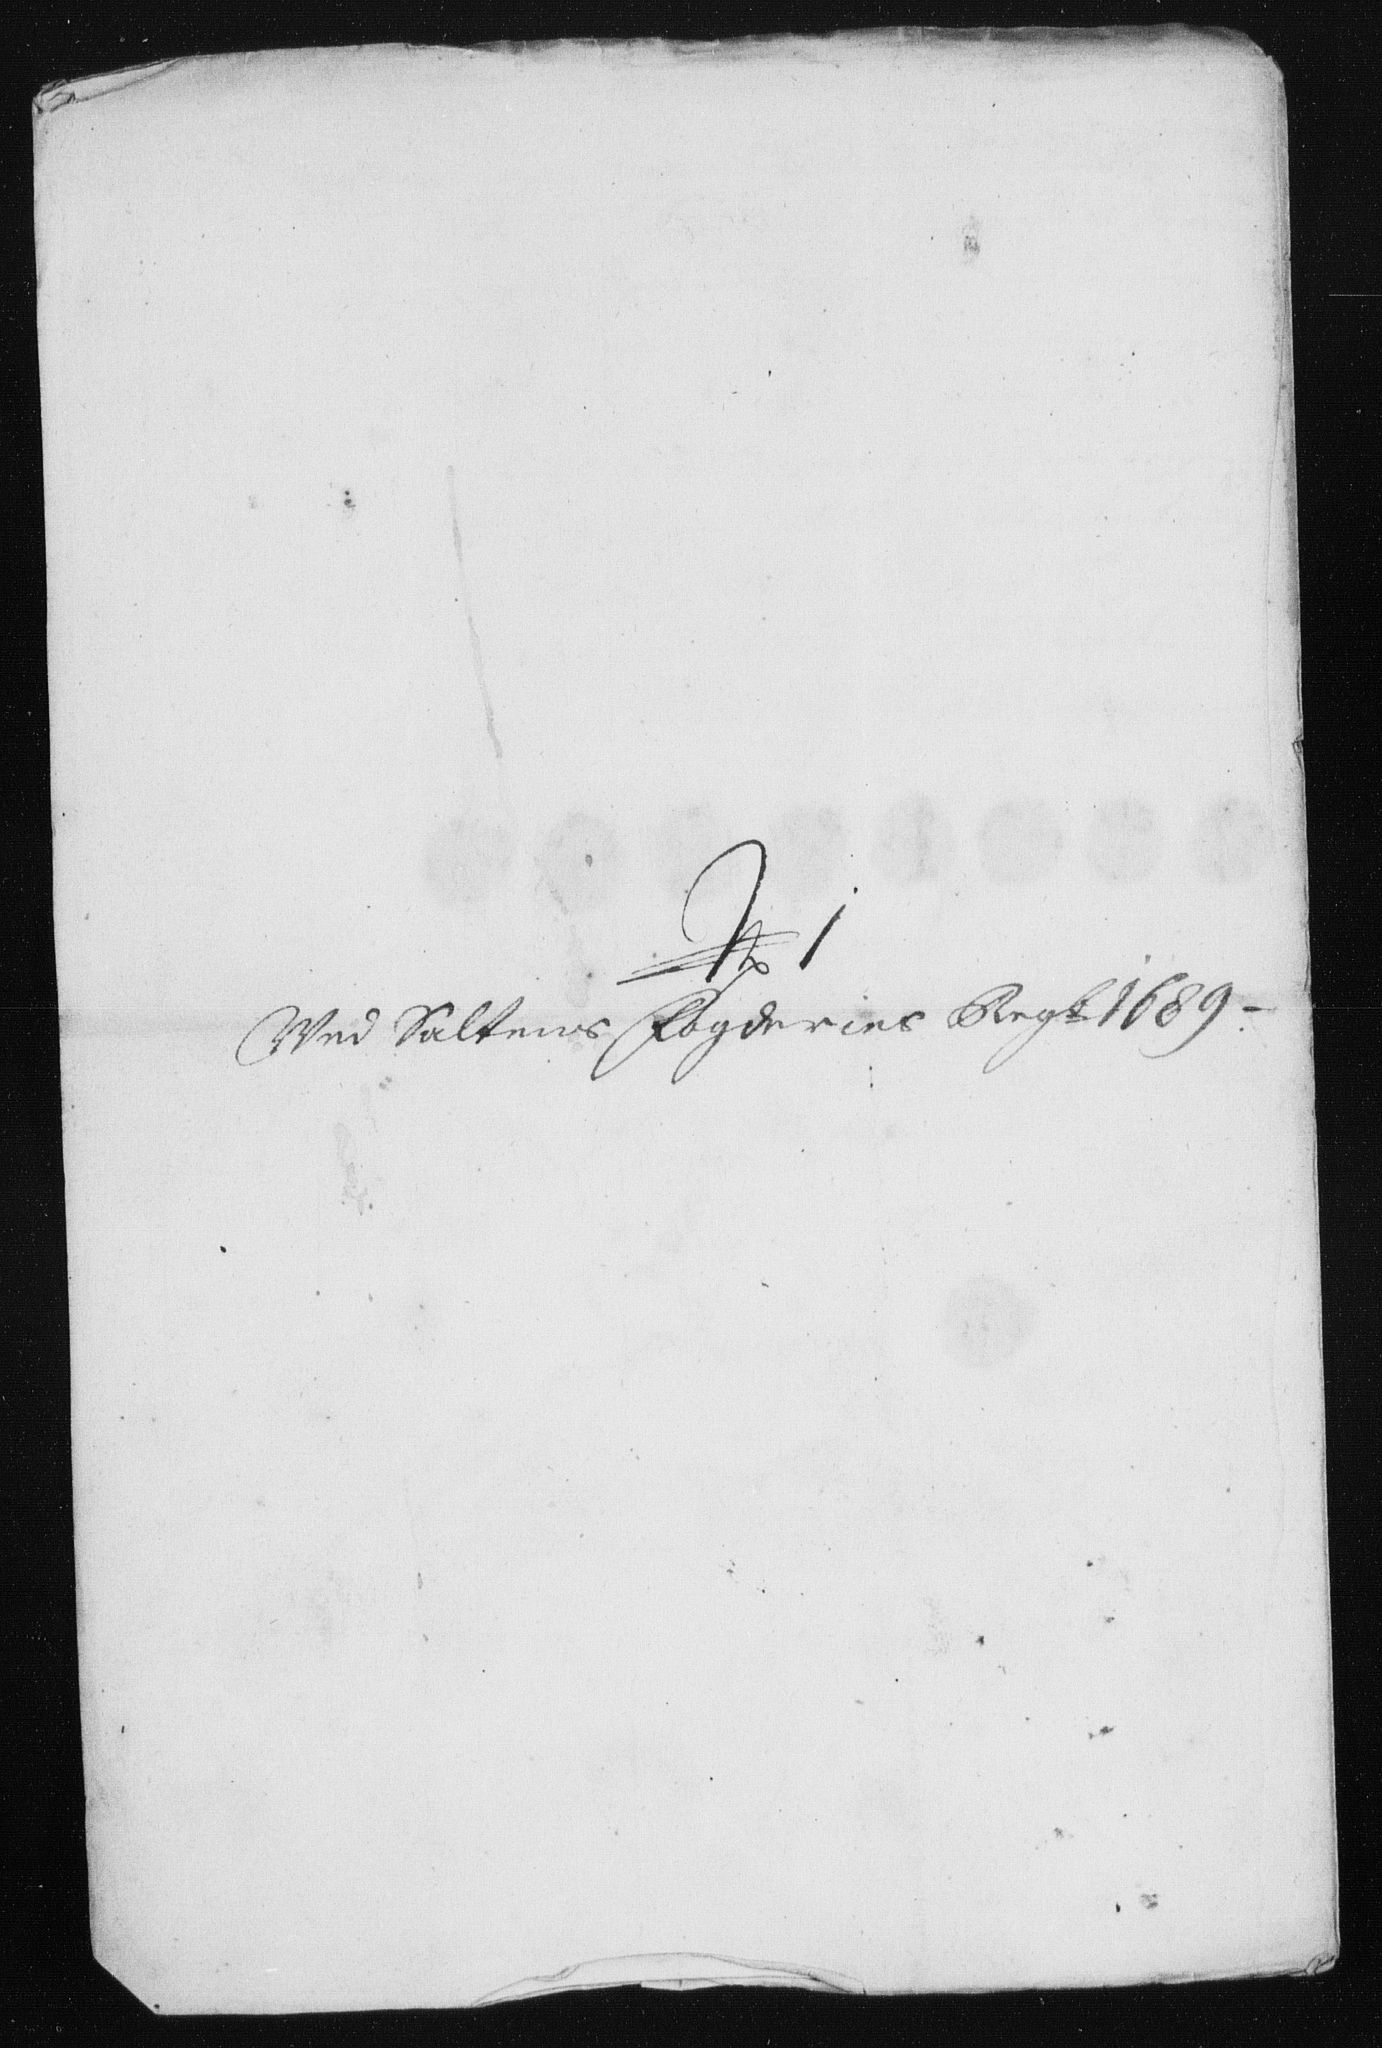 No 1
Ved Saltens Fogderies Regsk 1689 -